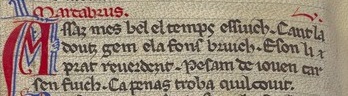 Marcabrus.
Assaz mes bel el temps essuich. Cant la
douz gem e la fons bruich. E son li
prat reverdent. Pesam de joven car
sen fuich. C a penas troba qui l couit.